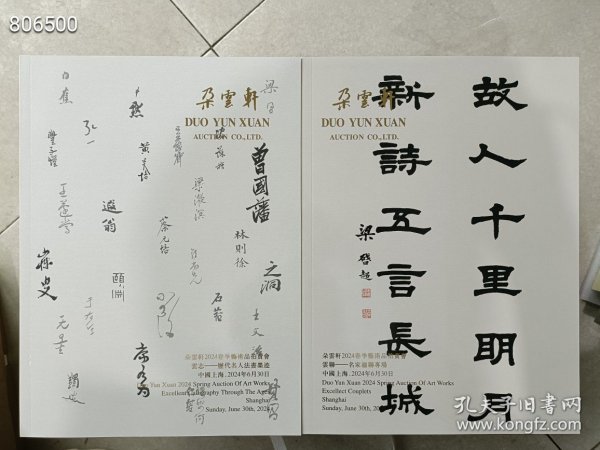 806500
朵雲軒
DUO YUN XUAN
AUCTION CO.,LTD.
白蕉
弘一
王蘧常
遐翁
黃炎培
蔡元培
梁漱溟
曾國藩
林則徐
之洞
石菴
王文治
于右任
康有為
朵雲軒2024春季藝術品拍賣會
雲志——歷代名人法書墨迹
中國上海．2024年6月30日
Duo Yun Xuan 2024 Spring Auction Of Art Works
Excellent Calligraphy Through The Ages
Shanghai
Sunday, June 30th, 2024
朵雲軒
DUO YUN XUAN
AUCTION CO.,LTD.
故人千里明月
新詩五言長城
梁啓超
朵雲軒2024春季藝術品拍賣會
雲聯——名家楹聯專場
中國上海．2024年6月30日
Duo Yun Xuan 2024 Spring Auction Of Art Works
Excellect Couplets
Shanghai
Sunday, June 30th, 2024
孔夫子旧书网
www.kongfz.com